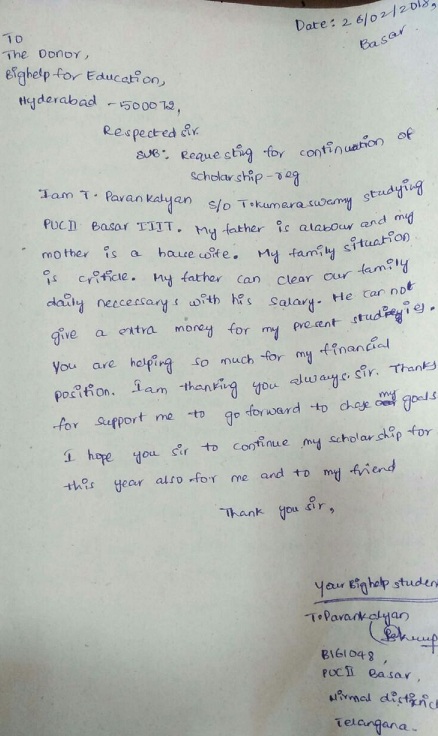 Date: 26/02/2018,
Basar
To
The Donor,
Bighelp for Education,
Hyderabad - 500072,
Respected sir
SUB: Requesting for continuation of
Scholarship-reg
Iam T. Pavankalyan S/o T.kumaraswamy studying
PUC II Basar IIIT. My father is alabour and my
mother is a housewite. My family situation
is criticle. My father can clear our family
daily neccessarys with his salary. He can not
give a extra money for my present studies.
You are helping so much for my financial
position. Iam thanking you always. sir. Thanks
for support me to go forward to chase my goals
I hope you sir to continue my scholarship for
this year also for me and to my friend
Thank you sir,
Your Bighelp studen
T. Pavankalyan
B161048,
PUC II Basar,
Nirmal district
Telangana.